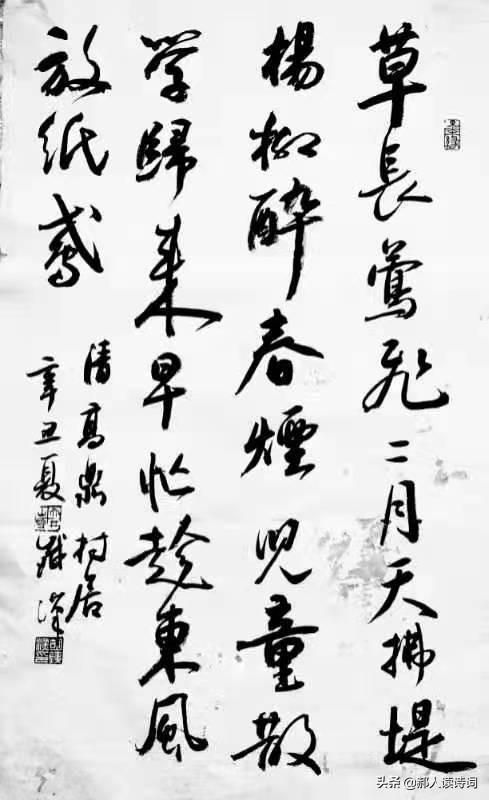 草長鶯飛二月天拂堤
楊柳醉春煙兒童散
学歸来早忙趁東風
放纸鸢
清高鼎村居
辛丑夏
头条 @郝人读诗词